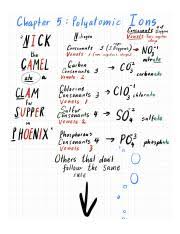 Chapter 5: Polyatomic Ions
"NICK the CAMEL ate a CLAM for SUPPER in PHOENIX"
Nitrogen
Consonants 3
Vowels 1
NO₃⁻¹
nitrate
Carbon
Consonants 3
Vowels 2
CO₃⁻²
carbonate
Chlorine
Consonants 3
Vowels 1
ClO₃⁻¹
chlorate
Sulfur
Consonants 4
Vowels 2
SO₄⁻²
sulfate
Phosphorus
Consonants 4
Vowels 3
PO₄⁻³
phosphate
Others that don't
follow the same
rule